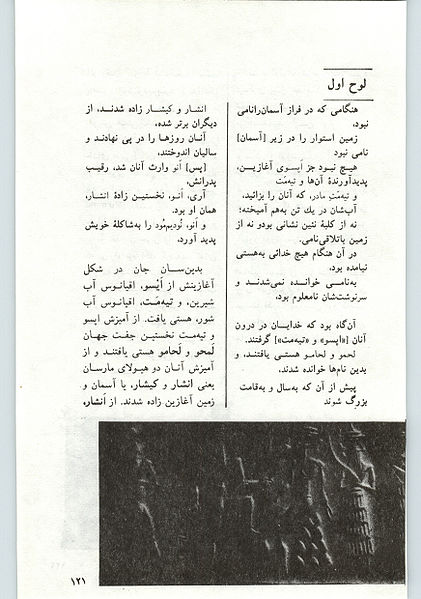 لوح اول
هنگامی که در فراز آسمان‌رانامی
نبود،
زمین استوار را در زیر [آسمان]
نامی نبود
هیچ نبود جز اَپسوی آغازیـن،
پدیدآورندهٔ آن‌ها و تیه‌مَت
و تیه‌مَتِ مادر، که آنان را بزائید،
آب‌شان در یك تن به‌هم آمیخته؛
نه از کلبهٔ نئین نشانی بودو نه از
زمین باتلاقی‌نامی.
در آن هنگام هیچ خدائی به‌هستی
نیامده بود،
به‌نامـی خوانـده نمی‌شدنـد و
سرنوشت‌شان نامعلوم بود،
آن‌گاه بود که خدایـان در درون
آنان [«اپسو» و «تیه‌مت»] گرفتند.
لحمو و لحامو هستـی یافتنـد، و
بدین نام‌ها خوانده شدند.
پیش از آن که به‌سال و به‌قامت
بزرگ شوند
انشار و کیشـار زاده شدنـد، از
دیگران برتر شده،
آنـان روزهـا را در پی نهادنـد و
سالیان اندوختند،
[پس] اَنو وارث آنان شد، رقیـب
پدرانش،
آری، اَنـو، نخستیـن زادهٔ انشار،
همان او بود.
و اَنو، نودیم‌مُود را به‌شاکلهٔ خویش
پدید آورد،
بدین‌سـان جان در شکل
آغازینش از اَپْسو، اقیانوس آب
شیرین، و تیه‌مَت، اقیانوس آب
شور، هستی یافت. از آمیزش اپسو
و تیه‌مت نخستین جفت جهان
لَحمو و لَحامو هستی یافتند و از
آمیزش آنان دو هیولای مارسان
یعنی انشار و کیشار، یا آسمان و
زمین آغازین زاده شدند. از اَنشار،
۱۲۱